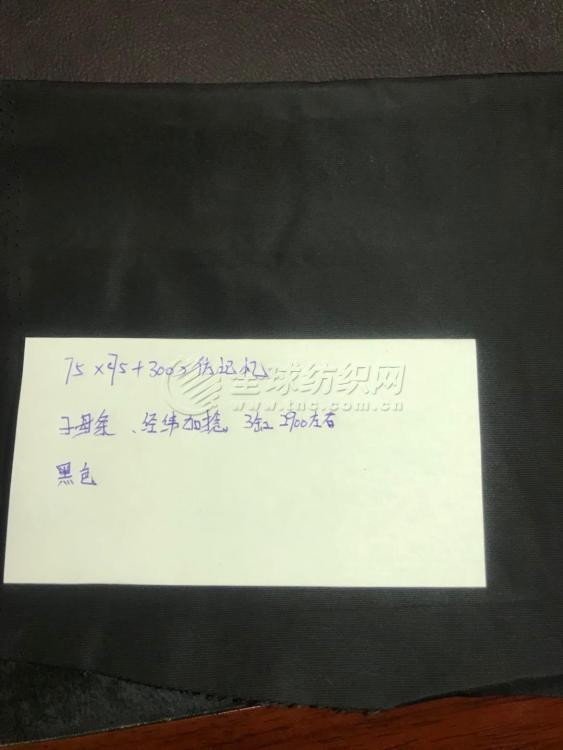 75×75+300D仿记忆
全球纺织网
www.tnc.com.cn
子母条、经纬加捻。 2900左右
黑色